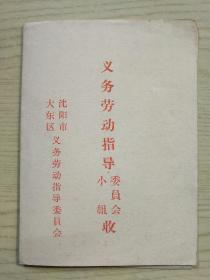 义务劳动指导委員会小組收
沈阳市大东区义务劳动指导委員会